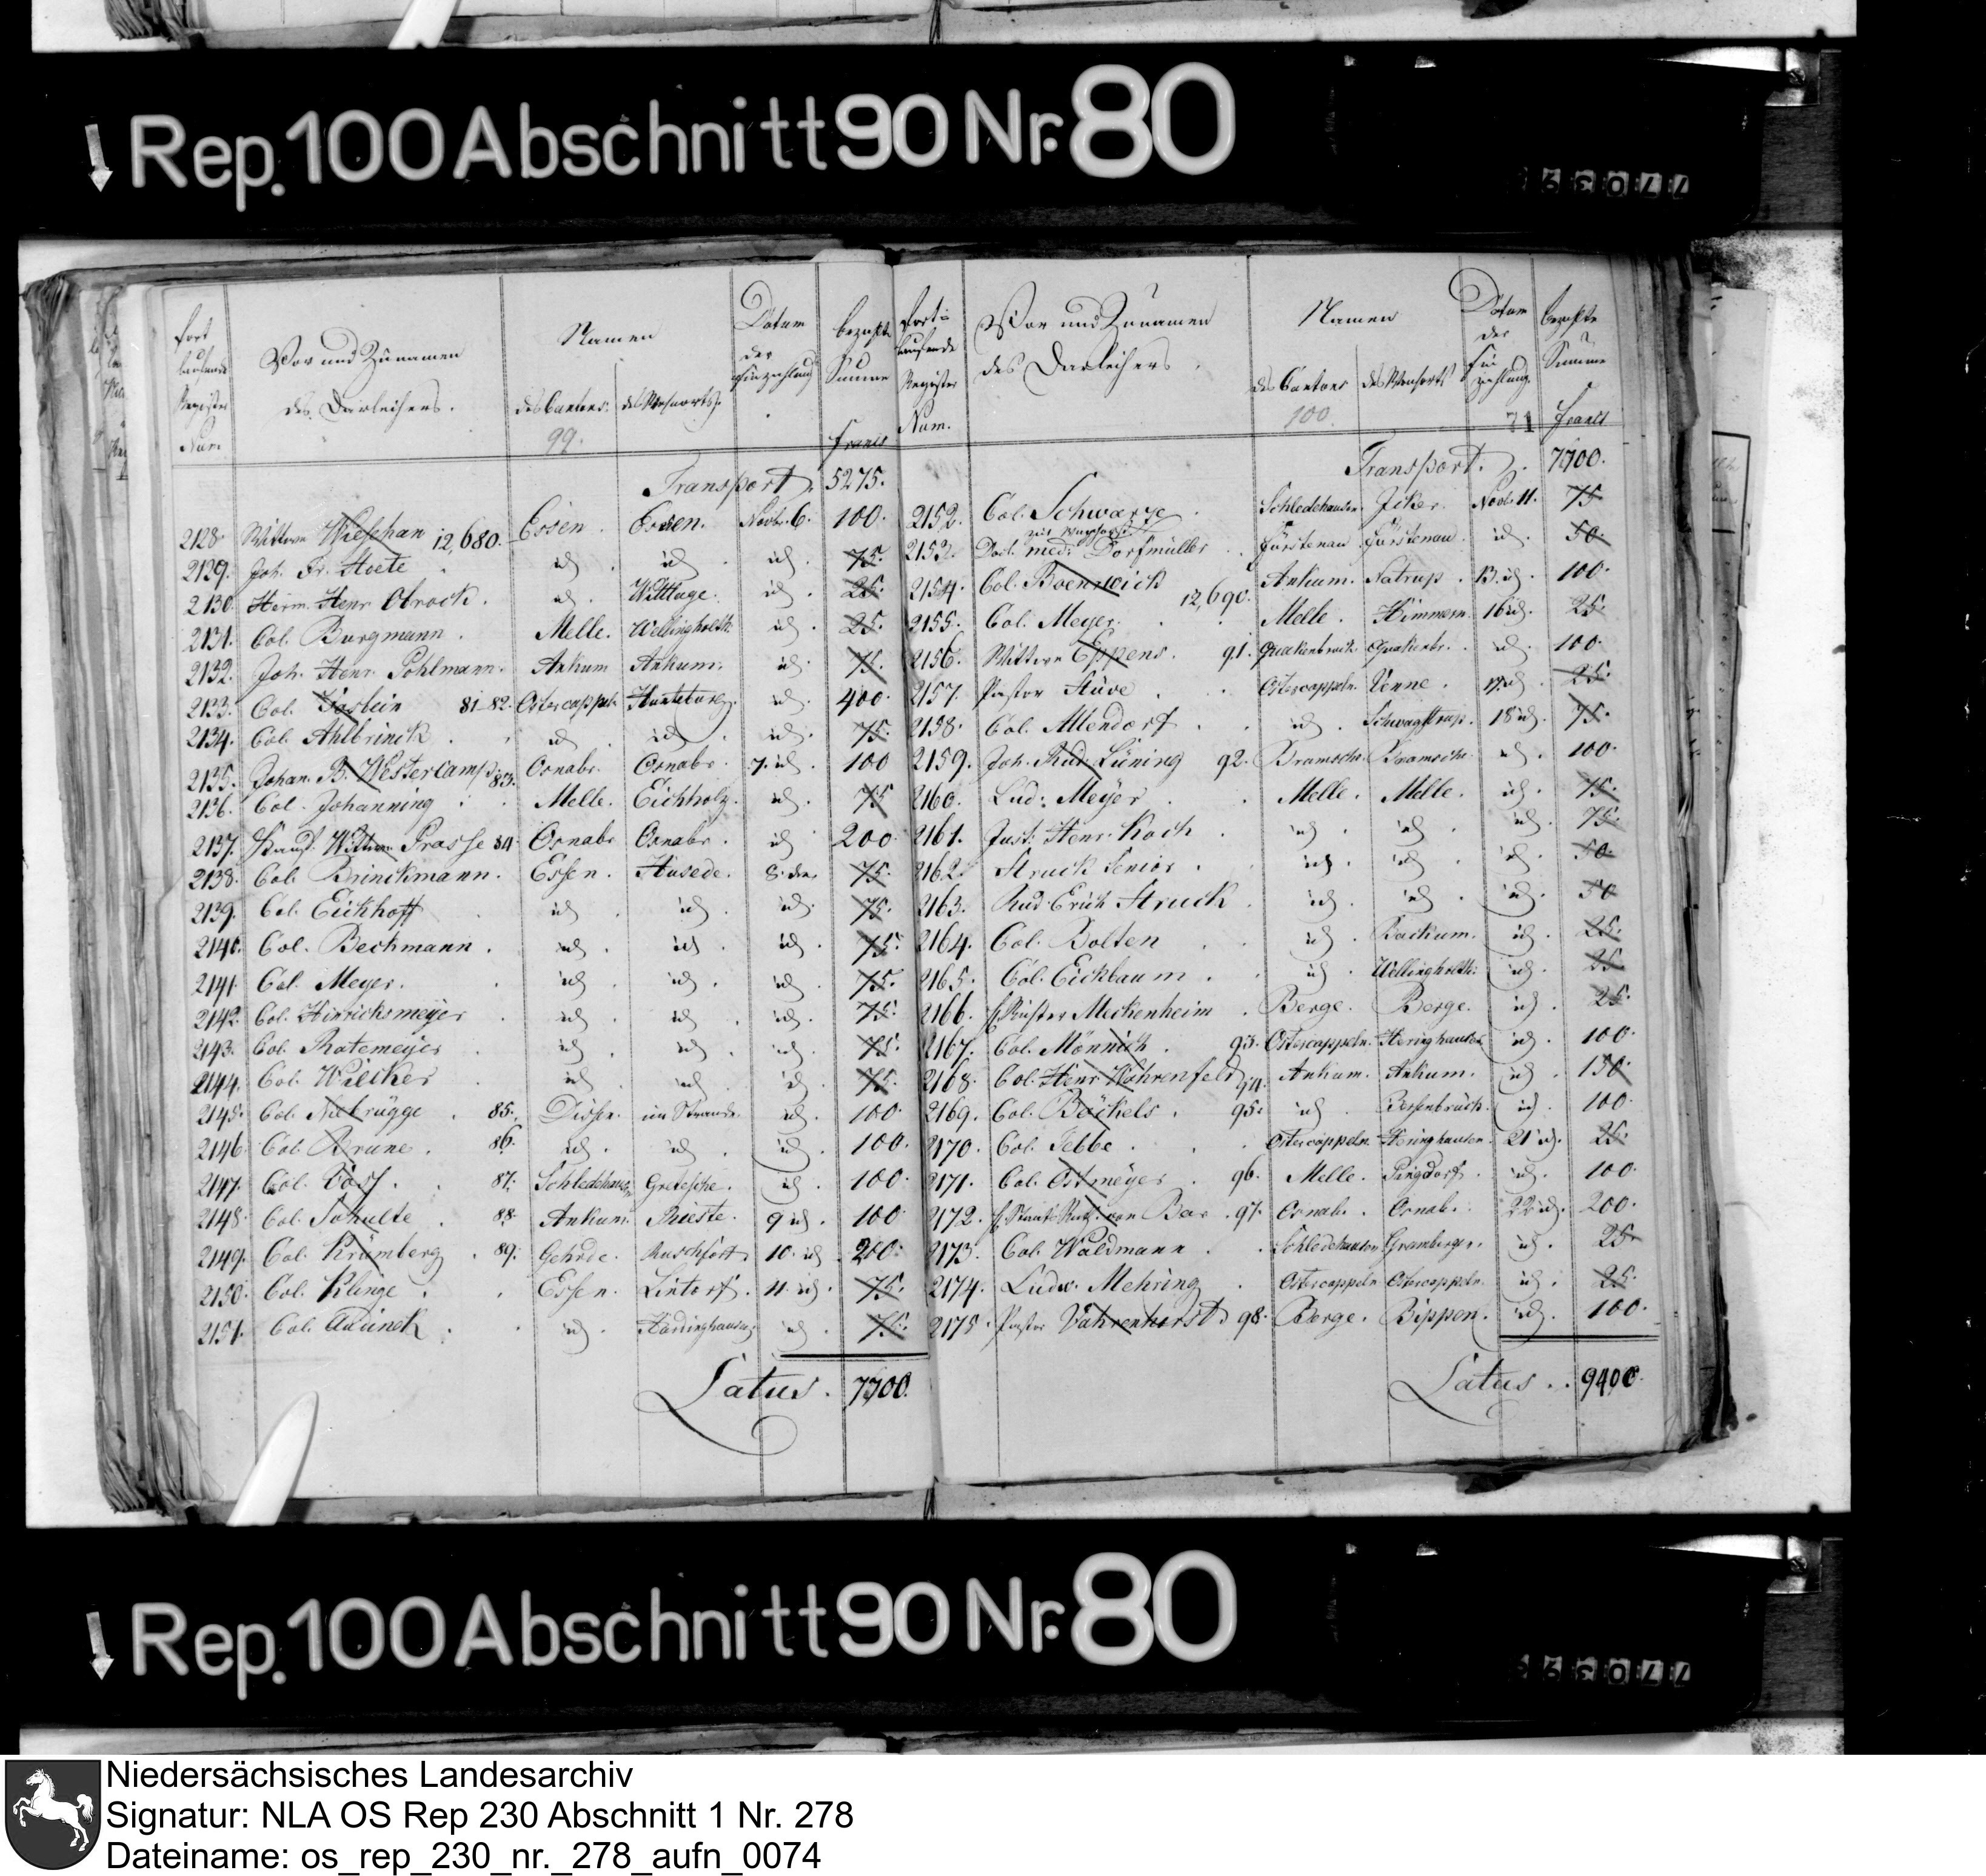 Rep. 100 Abschnitt 90 Nr. 80
77039
fort laufende Register Num.
Vor und Zunamen des Darleihers.
Namen
des Cantons. des Wohnorts.
Datum der Einzahlung
bezahlte Summe
francs
99.
Transport. 5275.
2128. Wittwe Wieschan 12,680. Essen. Essen. Novbr. 6. 100.
2129. Joh. Fr. Stoete id. id. id. 75.
2130. Herm. Henr. Obrock. id. Wittlage. id. 25.
2131. Col. Burgmann. Melle. Wellingholth. id. 25.
2132. Joh. Henr. Pohlmann. Ankum Ankum. id. 75.
2133. Col. 81-82. Ostercappel. Hunteburg. id. 400.
2134. Col. Ahlbrinck id. id. id. 75.
2135. Johan. B. Westercamp 83. Osnabr. Osnabr. 7. id. 100
2136. Col. Johanning Melle. Eichholz. id. 75
2137. Kauf. Wittwe Prasse 84 Osnabr. Osnabr. id 200
2138. Col. Brinckmann. Essen. Husede. 8. 75.
2139. Col. Eickhoff id. id. id. 75.
2140. Col. Beckmann. id. id. id. 75.
2141. Col. Meyer. id. id. id. 75.
2142. Col. Hinrichsmeyer id. id. id. 75.
2143. Col. Ratemeyer id. id. id. 75.
2144. Col. Wilcker id. id. id. 75.
2145. Col. Niebrügge 85. Dissen. im Strande id. 100.
2146. Col. Brune. 86. id. id. id. 100.
2147. Col. 87. Schledehausen Gretesche. id. 100.
2148. Col. Schulte 88. Ankum. Rieste. 9 id. 100
2149. Col. Krümberg 89. Gehrde. Ruschfort 10. id. 200.
2150. Col. Klinge. Essen. Lintorf. 11. id. 75.
2151. Col. id. id. 75.
Latus. 7700.
Fort= laufende Register Num.
Vor und Zunamen des Darleihers.
Namen
des Cantons des Wohnorts
Datum der Einzahlung.
bezahlte Summe
francs
100.
71
Transport. 7700.
2152. Col. Schwarze. Schledehausen. Icker. Novb. 11. 75.
2153. Doct. med: Dorfmüller Fürstenau. Fürstenau. id. 50.
2154. Col. Boenwick 12,690. Ankum. Natrup. 13. id. 100.
2155. Col. Meyer. Melle. Himmern. 16 id. 25.
2156. Wittwe Eppens. 91. Quakenbrück. Quakenbr. id. 100.
2157. Pastor Stüve Ostercappeln. Venne. 17. id. 25.
2158. Col. Allendorf id. Schwagstrup. 18 id. 75.
2159. Joh. Rud. Lüning 92. Bramsche. Bramsche. id. 100.
2160. Lud: Meyer Melle. Melle. id. 75.
2161. Just: Henr. Koch id. id. id. 75.
2162. Struck Senior id. id. id. 50.
2163. Rud. Erich Struck id. id. id. 50
2164. Col. Bolten id. Backum. id. 25.
2165. Col. Eickbaum. id. Wellingholth. id. 25
2166. Meckenheim Berge. Berge. id. 25.
2167. Col. Mönnich. 93. Ostercappeln. Heringhausen id. 100.
2168. Col. Henr. Wöhrenfeld 94. Ankum. Ankum. id. 150.
2169. Col. Böckels. 95. id. Bersenbrück. id. 100.
2170. Col. Tebbe. Ostercappeln. Heringhausen. 21 id. 25.
2171. Col. Ostmeyer 96. Melle. id. 100.
2172. von Bar. 97. Osnab. Osnab. 22 id. 200.
2173. Col. Waldmann Schledehausen Gramberge. id. 25.
2174. Ludw. Mehring Ostercappeln Ostercappeln. id. 25.
2175. Pastor Vahrenhorst 98. Berge. Bippen. id. 100.
Latus. 9400.
Rep. 100 Abschnitt 90 Nr. 80
77039
Niedersächsisches Landesarchiv
Signatur: NLA OS Rep 230 Abschnitt 1 Nr. 278
Dateiname: os_rep_230_nr._278_aufn_0074